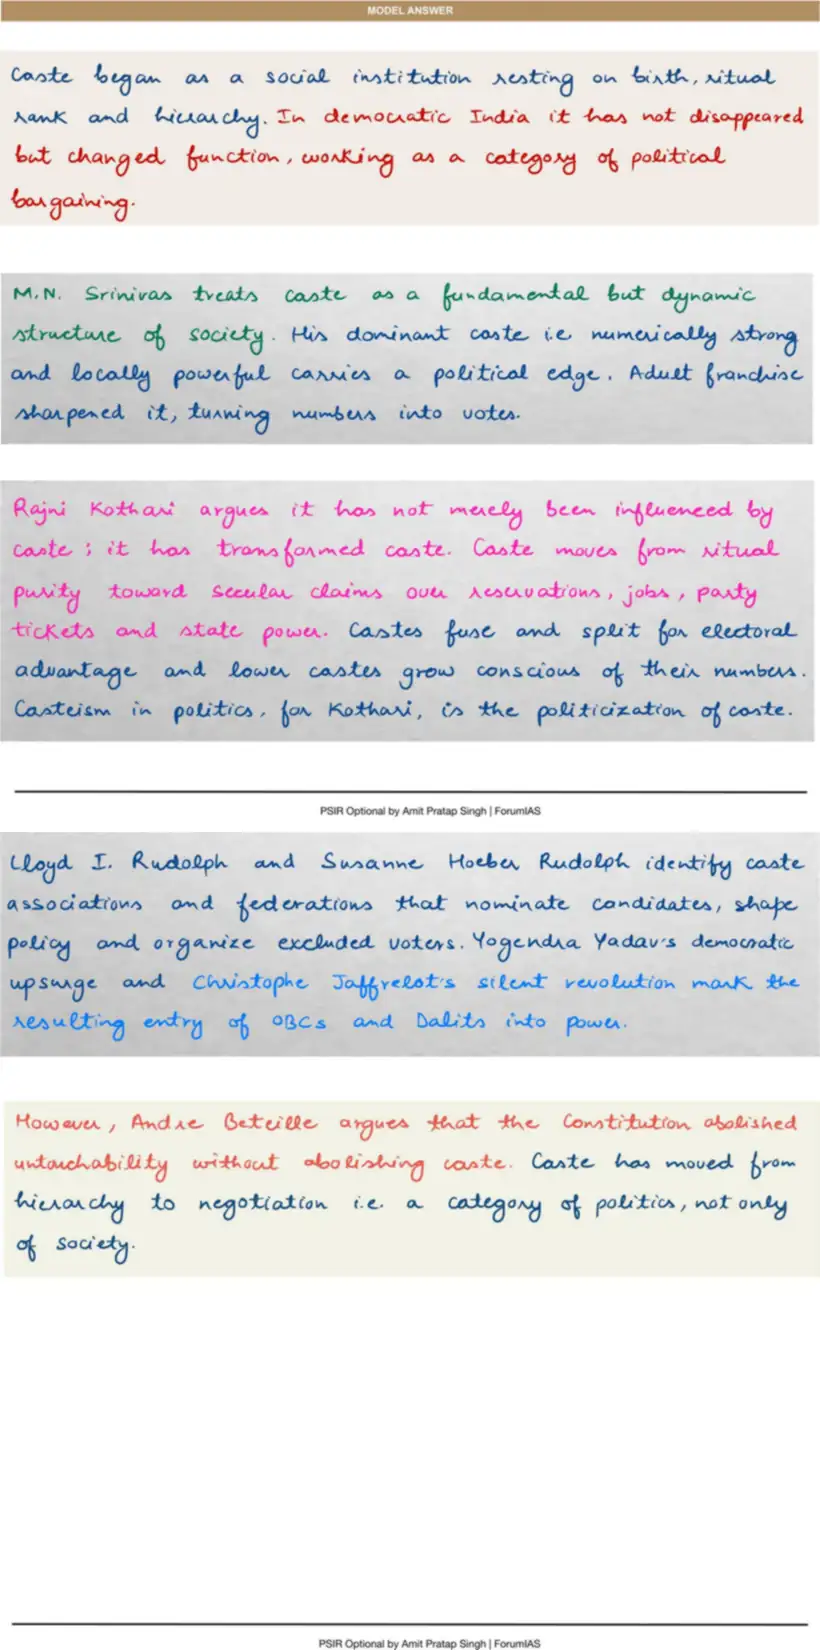 MODEL ANSWER
Caste began as a social institution resting on birth, ritual
rank and hierarchy. In democratic India it has not disappeared
but changed function, working as a category of political
bargaining.
M.N. Srinivas treats caste as a fundamental but dynamic
structure of society. His dominant caste i.e numerically strong
and locally powerful carries a political edge. Adult franchise
sharpened it, turning numbers into votes.
Rajni Kothari argues it has not merely been influenced by
caste ; it has transformed caste. Caste moves from ritual
purity toward secular claims over reservations, jobs, party
tickets and state power. Castes fuse and split for electoral
advantage and lower castes grow conscious of their numbers.
Casteism in politics, for Kothari, is the politicization of caste.
PSIR Optional by Amit Pratap Singh | ForumIAS
Lloyd I. Rudolph and Susanne Hoeber Rudolph identify caste
associations and federations that nominate candidates, shape
policy and organize excluded voters. Yogendra Yadav's democratic
upsurge and Christophe Jaffrelot's silent revolution mark the
resulting entry of OBCs and Dalits into power.
However, Andre Beteille argues that the Constitution abolished
untouchability without abolishing caste. Caste has moved from
hierarchy to negotiation i.e. a category of politics, not only
of society.
PSIR Optional by Amit Pratap Singh | ForumIAS